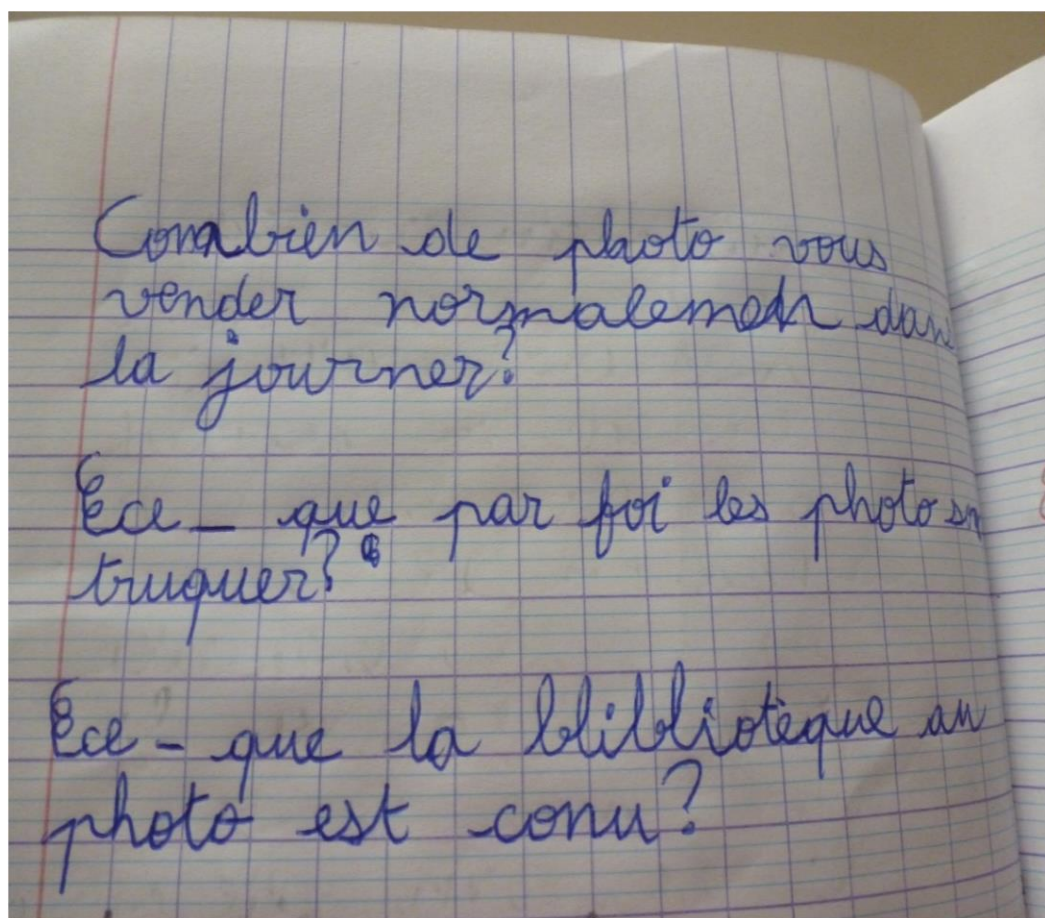 Combien de photo vous
vender normalement dans
la journer?
Ece-que par foi les photo
truquer?
Ece-que la blibliotèque an
photo est conu?